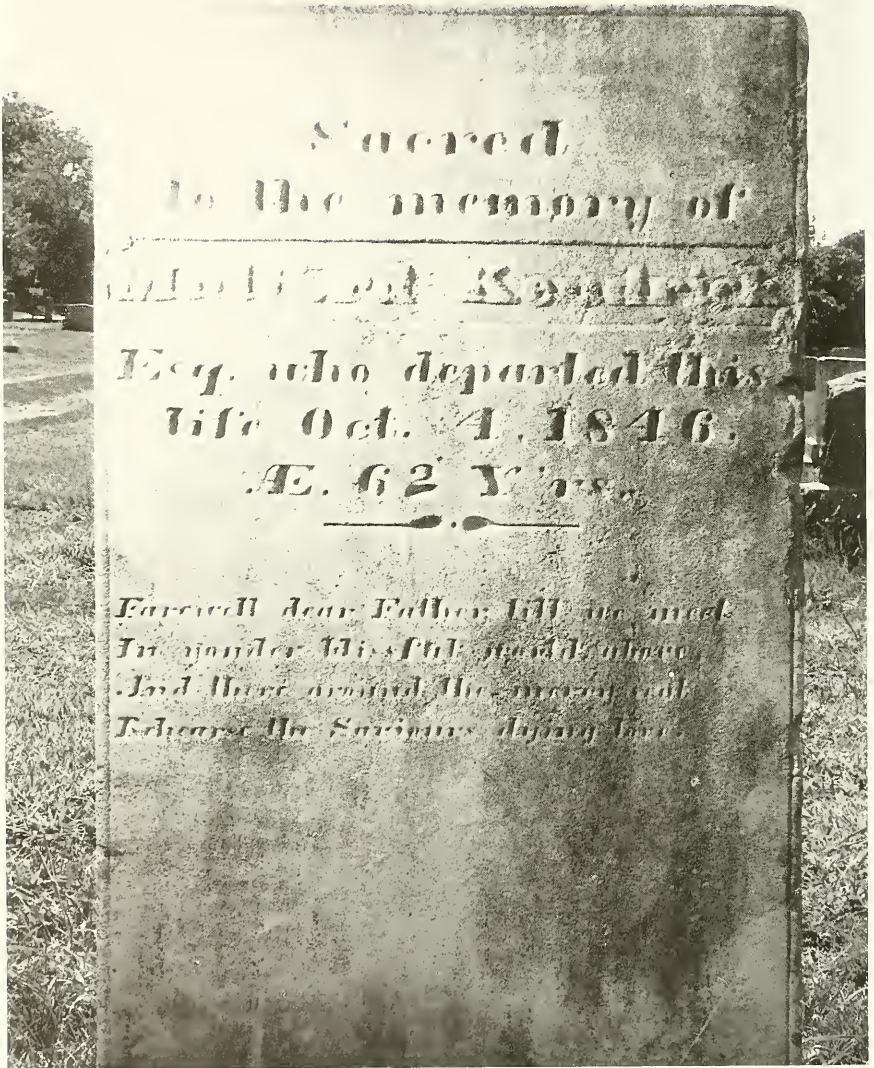 Sacred
to the memory of
Kendrick
Esq. who departed this
life Oct. 4, 1846.
Æ. 62 Y'rs.
Farewell dear Father, till we meet
In yonder blissful world above,
And there around the mercy seat
Rehearse the Saviours dying love.